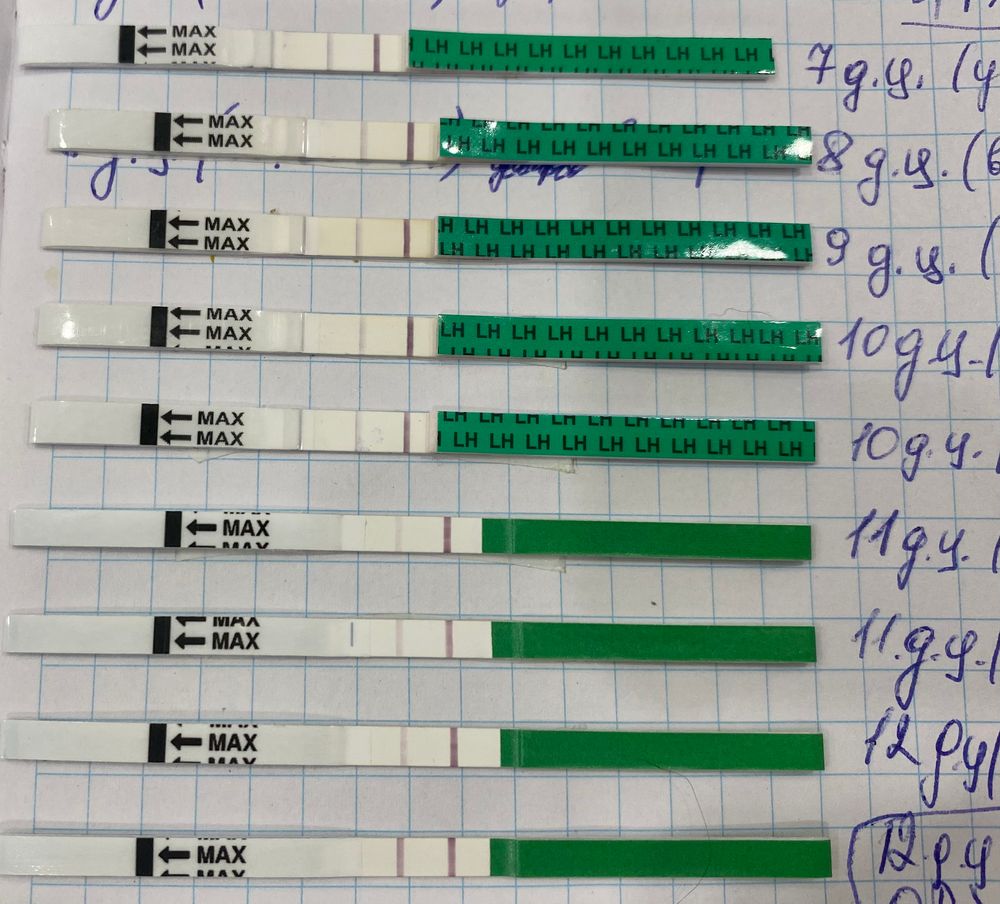 MAX
MAX
LH LH LH LH LH LH LH LH LH LH
7 д.ц. (у
MAX
MAX
LH LH LH LH LH LH LH LH LH LH
LH LH LH LH LH LH LH LH LH
8 д.ц. (в
MAX
MAX
LH LH LH LH LH LH LH LH LH LH
LH LH LH LH LH LH LH LH LH LH
9 д.ц. (
MAX
MAX
LH LH LH LH LH LH LH LH LH LH LH
10 д.ц. (
MAX
MAX
LH LH LH LH LH LH LH LH LH LH
LH LH LH LH LH LH LH LH LH LH
10 д.ц. (
MAX
MAX
11 д.ц. (
MAX
MAX
11 д.ц. (
MAX
MAX
12 д.ц (
MAX
MAX
12 д.ц